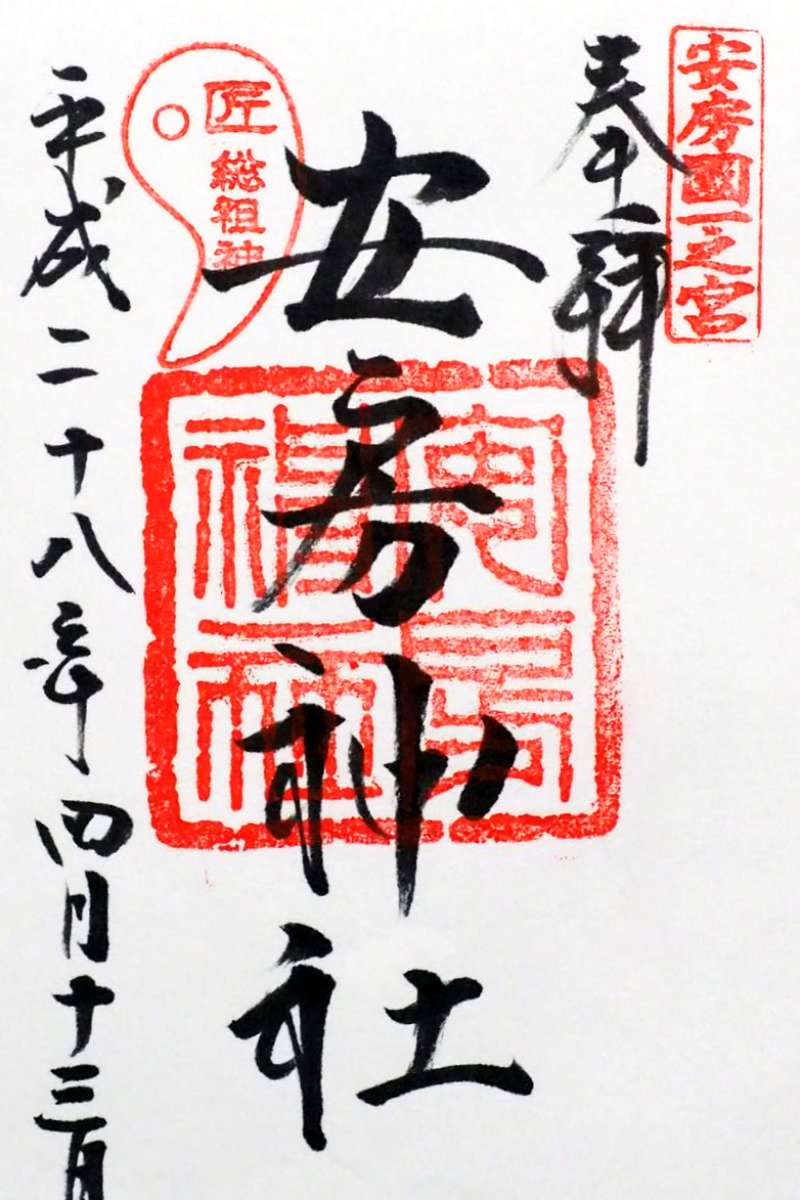 安房國一之宮
奉拜
安房神社
匠
総祖神
平成二十八年四月十三日